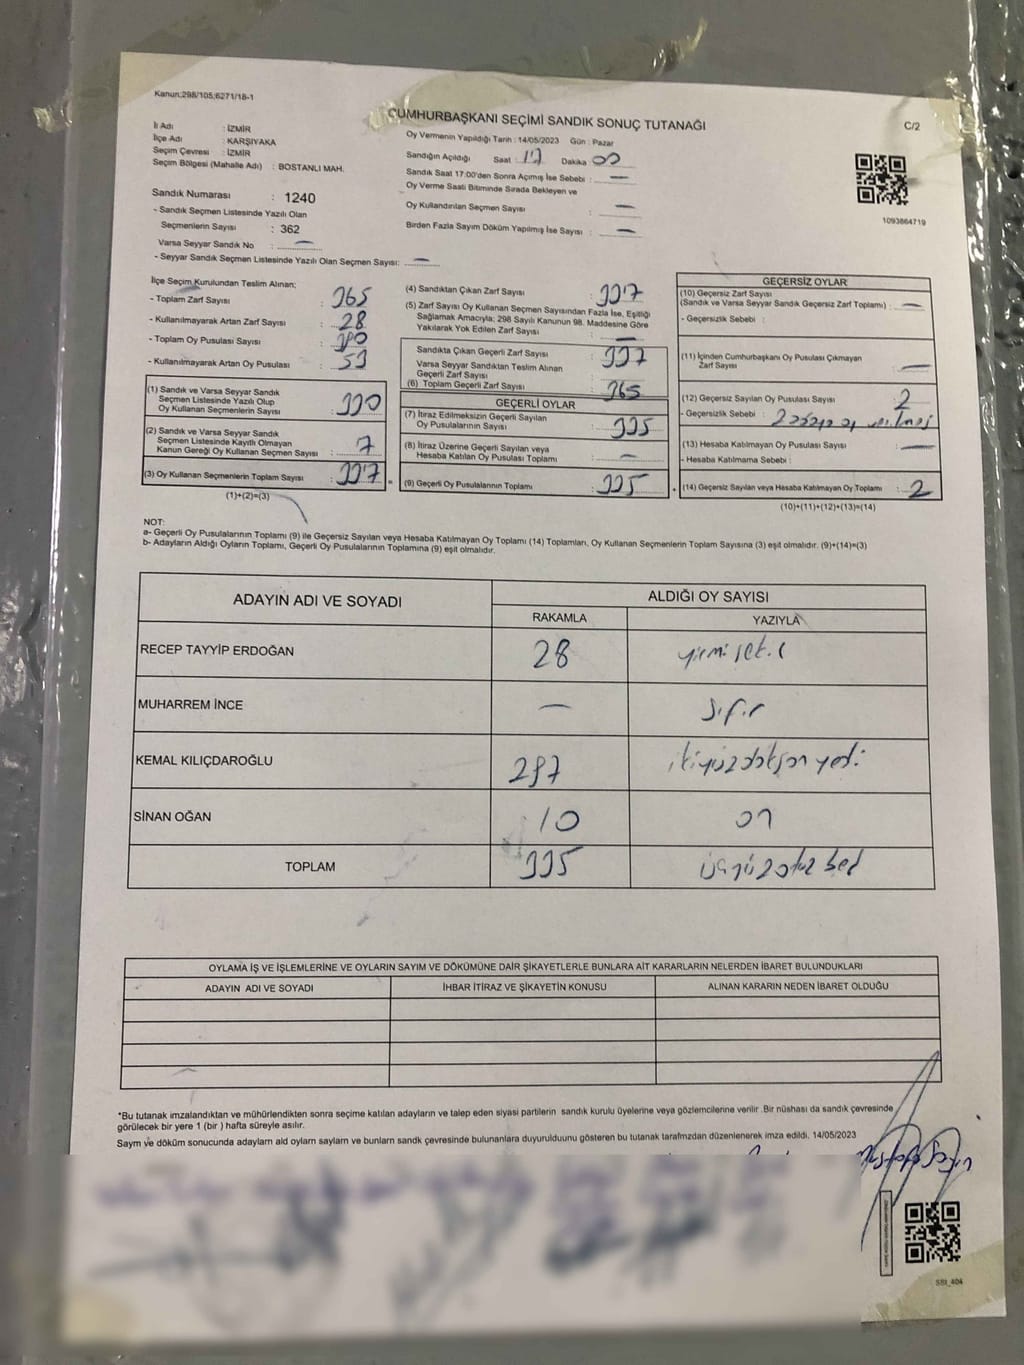 Kanun:298/105;6271/18-1
CUMHURBAŞKANI SEÇİMİ SANDIK SONUÇ TUTANAĞI
C/2
İl Adı : İZMİR
İlçe Adı : KARŞIYAKA
Seçim Çevresi : İZMİR
Seçim Bölgesi (Mahalle Adı) : BOSTANLI MAH.
Sandık Numarası : 1240
- Sandık Seçmen Listesinde Yazılı Olan
Seçmenlerin Sayısı : 362
Varsa Seyyar Sandık No : —
- Seyyar Sandık Seçmen Listesinde Yazılı Olan Seçmen Sayısı: —
Oy Vermenin Yapıldığı Tarih : 14/05/2023 Gün : Pazar
Sandığın Açıldığı Saat : 17 Dakika 00
Sandık Saat 17:00'den Sonra Açımış İse Sebebi : —
Oy Verme Saati Bitiminde Sırada Bekleyen ve
Oy Kullandırılan Seçmen Sayısı : —
Birden Fazla Sayım Döküm Yapılmış İse Sayısı : —
1093864719
İlçe Seçim Kurulundan Teslim Alınan;
- Toplam Zarf Sayısı : 365
- Kullanılmayarak Artan Zarf Sayısı : 28
- Toplam Oy Pusulası Sayısı :
- Kullanılmayarak Artan Oy Pusulası : 53
(1) Sandık ve Varsa Seyyar Sandık
Seçmen Listesinde Yazılı Olup
Oy Kullanan Seçmenlerin Sayısı : 330
(2) Sandık ve Varsa Seyyar Sandık
Seçmen Listesinde Kayıtlı Olmayan
Kanun Gereği Oy Kullanan Seçmen Sayısı : 7
(3) Oy Kullanan Seçmenlerin Toplam Sayısı : 337
(1)+(2)=(3)
(4) Sandıktan Çıkan Zarf Sayısı : 337
(5) Zarf Sayısı Oy Kullanan Seçmen Sayısından Fazla İse, Eşitliği
Sağlamak Amacıyla; 298 Sayılı Kanunun 98. Maddesine Göre
Yakılarak Yok Edilen Zarf Sayısı : —
Sandıkta Çıkan Geçerli Zarf Sayısı : 337
Varsa Seyyar Sandıktan Teslim Alınan
Geçerli Zarf Sayısı :
(6) Toplam Geçerli Zarf Sayısı : 365
GEÇERLİ OYLAR
(7) İtiraz Edilmeksizin Geçerli Sayılan
Oy Pusulalarının Sayısı : 335
(8) İtiraz Üzerine Geçerli Sayılan veya
Hesaba Katılan Oy Pusulası Toplamı : —
(9) Geçerli Oy Pusulalarının Toplamı : 335
GEÇERSİZ OYLAR
(10) Geçersiz Zarf Sayısı
(Sandık ve Varsa Seyyar Sandık Geçersiz Zarf Toplamı) : —
- Geçersizlik Sebebi :
(11) İçinden Cumhurbaşkanı Oy Pusulası Çıkmayan
Zarf Sayısı : —
(12) Geçersiz Sayılan Oy Pusulası Sayısı : 2
- Geçersizlik Sebebi :
(13) Hesaba Katılmayan Oy Pusulası Sayısı : —
- Hesaba Katılmama Sebebi :
(14) Geçersiz Sayılan veya Hesaba Katılmayan Oy Toplamı : 2
(10)+(11)+(12)+(13)=(14)
NOT:
a- Geçerli Oy Pusulalarının Toplamı (9) ile Geçersiz Sayılan veya Hesaba Katılmayan Oy Toplamı (14) Toplamları, Oy Kullanan Seçmenlerin Toplam Sayısına (3) eşit olmalıdır. (9)+(14)=(3)
b- Adayların Aldığı Oyların Toplamı, Geçerli Oy Pusulalarının Toplamına (9) eşit olmalıdır.
ADAYIN ADI VE SOYADI ALDIĞI OY SAYISI
RAKAMLA YAZIYLA
RECEP TAYYİP ERDOĞAN 28 yirmi sekiz
MUHARREM İNCE — sıfır
KEMAL KILIÇDAROĞLU 297 ikiyüzdoksan yedi
SİNAN OĞAN 10 on
TOPLAM 335 üçyüzotuz beş
OYLAMA İŞ VE İŞLEMLERİNE VE OYLARIN SAYIM VE DÖKÜMÜNE DAİR ŞİKAYETLERLE BUNLARA AİT KARARLARIN NELERDEN İBARET BULUNDUKLARI
ADAYIN ADI VE SOYADI İHBAR İTİRAZ VE ŞİKAYETİN KONUSU ALINAN KARARIN NEDEN İBARET OLDUĞU
*Bu tutanak imzalandıktan ve mühürlendikten sonra seçime katılan adayların ve talep eden siyasi partilerin sandık kurulu üyelerine veya gözlemcilerine verilir .Bir nüshası da sandık çevresinde
görülecek bir yere 1 (bir ) hafta süreyle asılır.
Sayım ve döküm sonucunda adayların ald oyların sayların ve bunların sandk çevresinde bulunanlara duyurulduunu gösteren bu tutanak tarafmzdan düzenlenerek imza edildi. 14/05/2023
SBt_404